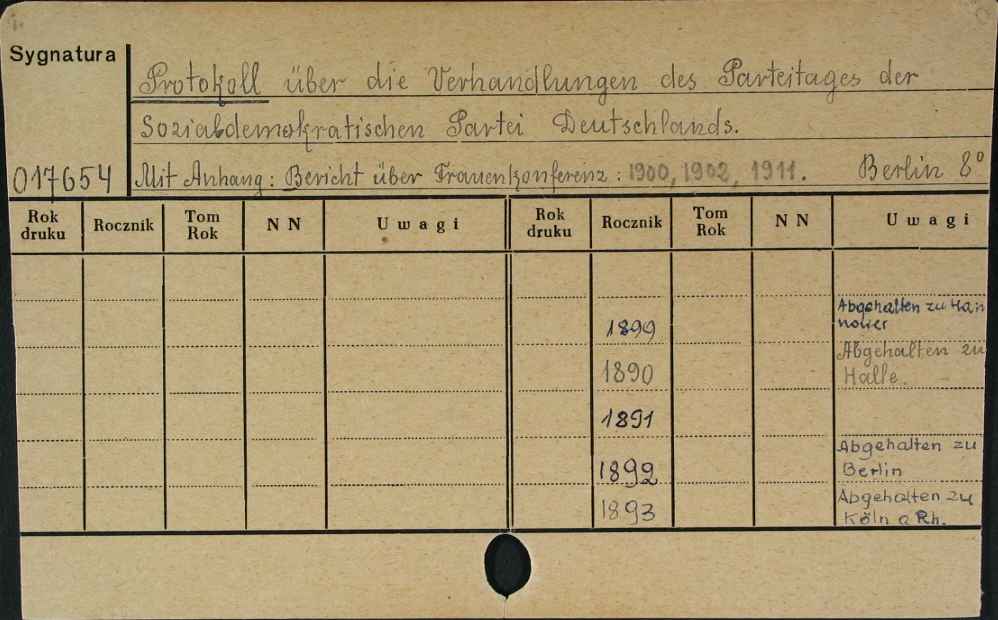 Sygnatura
Protokoll über die Verhandlungen des Parteitages der
Sozialdemokratischen Partei Deutschlands.
017654 Mit Anhang: Bericht über Frauenkonferenz: 1900, 1902, 1911. Berlin 8°
Rok druku Rocznik Tom Rok NN Uwagi Rok druku Rocznik Tom Rok NN Uwagi
1899 Abgehalten zu Han
nover
1890 Abgehalten zu
Halle.
1891
1892 Abgehalten zu
Berlin
1893 Abgehalten zu
Köln a Rh.